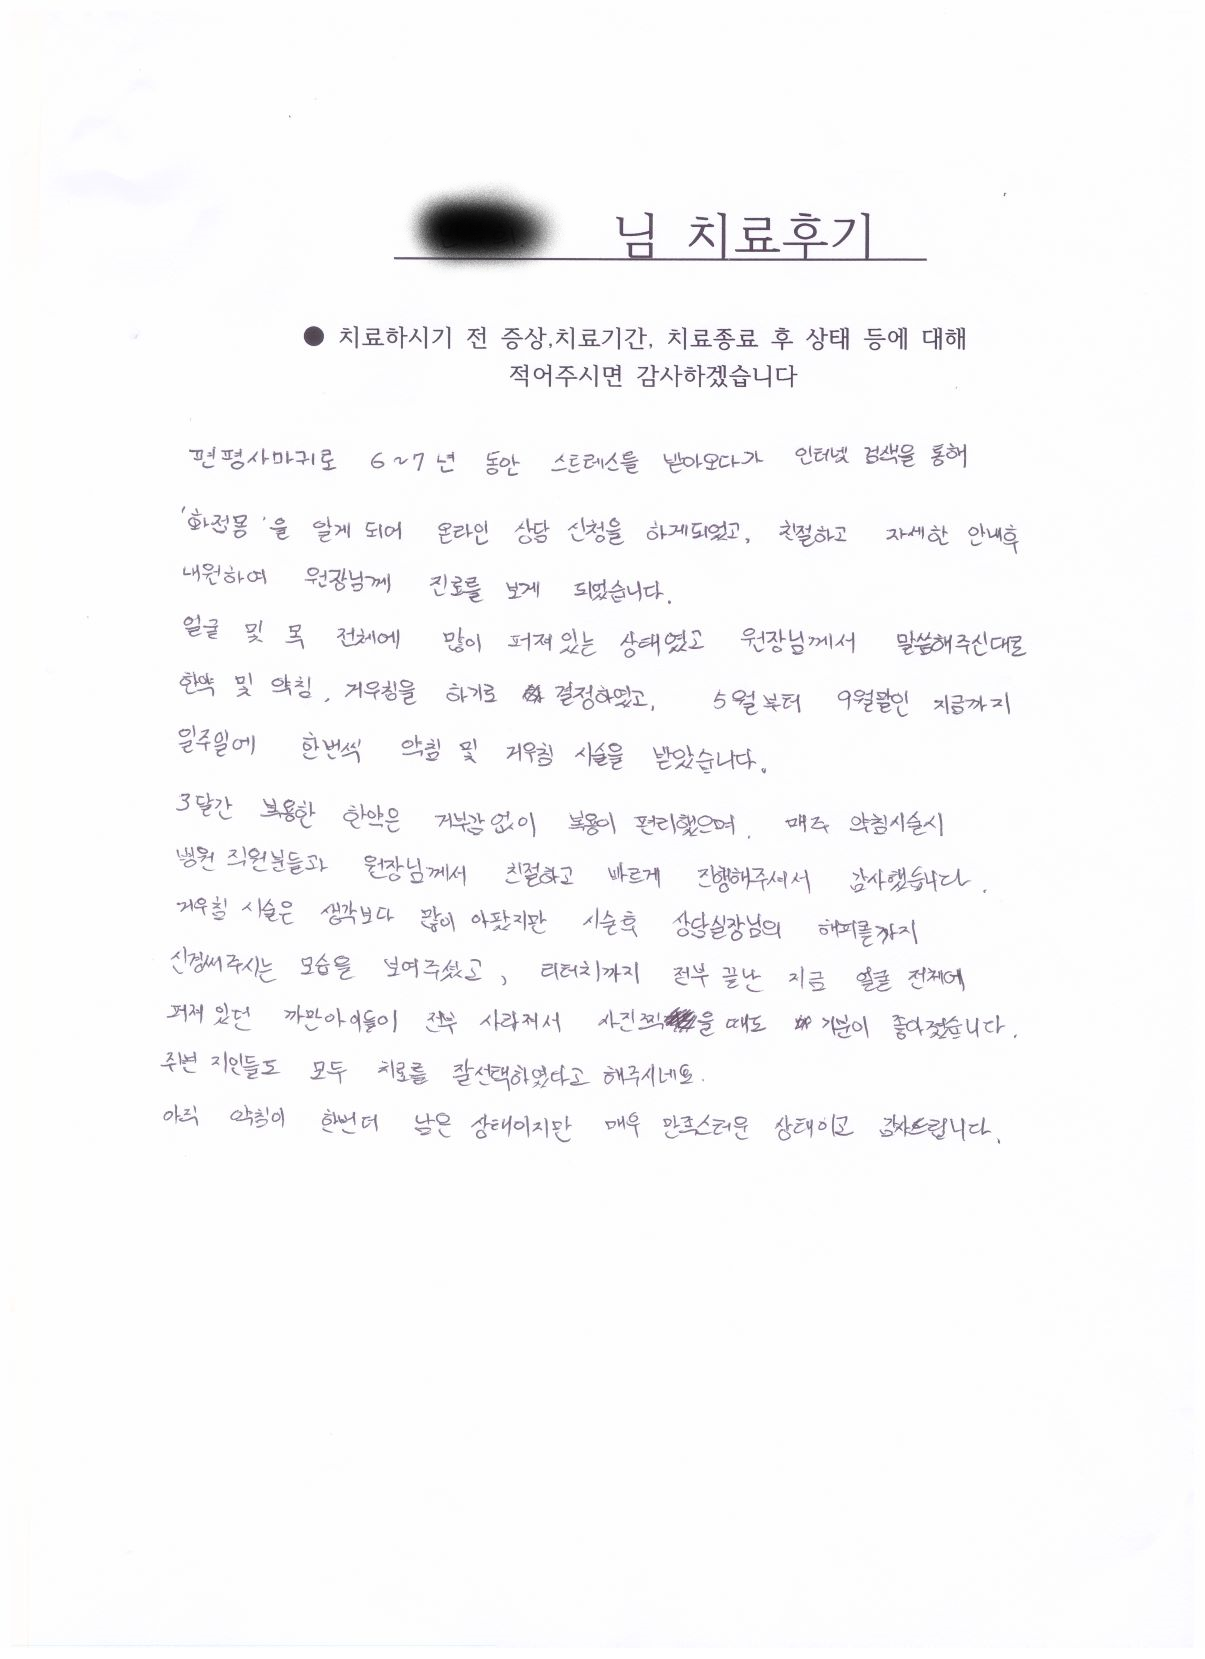 님 치료후기
● 치료하시기 전 증상,치료기간, 치료종료 후 상태 등에 대해
적어주시면 감사하겠습니다
편평사마귀로 6~7년 동안 스트레스를 받아오다가 인터넷 검색을 통해
'화접몽'을 알게 되어 온라인 상담 신청을 하게되었고, 친절하고 자세한 안내후
내원하여 원장님께 진료를 보게 되었습니다.
얼굴 및 목 전체에 많이 퍼져있는 상태였고 원장님께서 말씀해주신대로
한약 및 약침, 거우침을 하기로 결정하였고, 5월부터 9월말인 지금까지
일주일에 한번씩 약침 및 거우침 시술을 받았습니다.
3달간 복용한 한약은 거부감 없이 복용이 편리했으며, 매주 약침시술시
병원 직원분들과 원장님께서 친절하고 바르게 진행해주셔서 감사했습니다.
거우침 시술은 생각보다 많이 아팠지만 시술후 상담실장님의 해피콜까지
신경써주시는 모습을 보여주셨고, 리터치까지 전부 끝난 지금 얼굴 전체에
퍼져있던 까만아이들이 전부 사라져서 사진찍을때도 기분이 좋아졌습니다.
주변 지인들도 모두 치료를 잘선택하였다고 해주시네요.
아직 약침이 한번더 남은 상태이지만 매우 만족스러운 상태이고 감사드립니다.